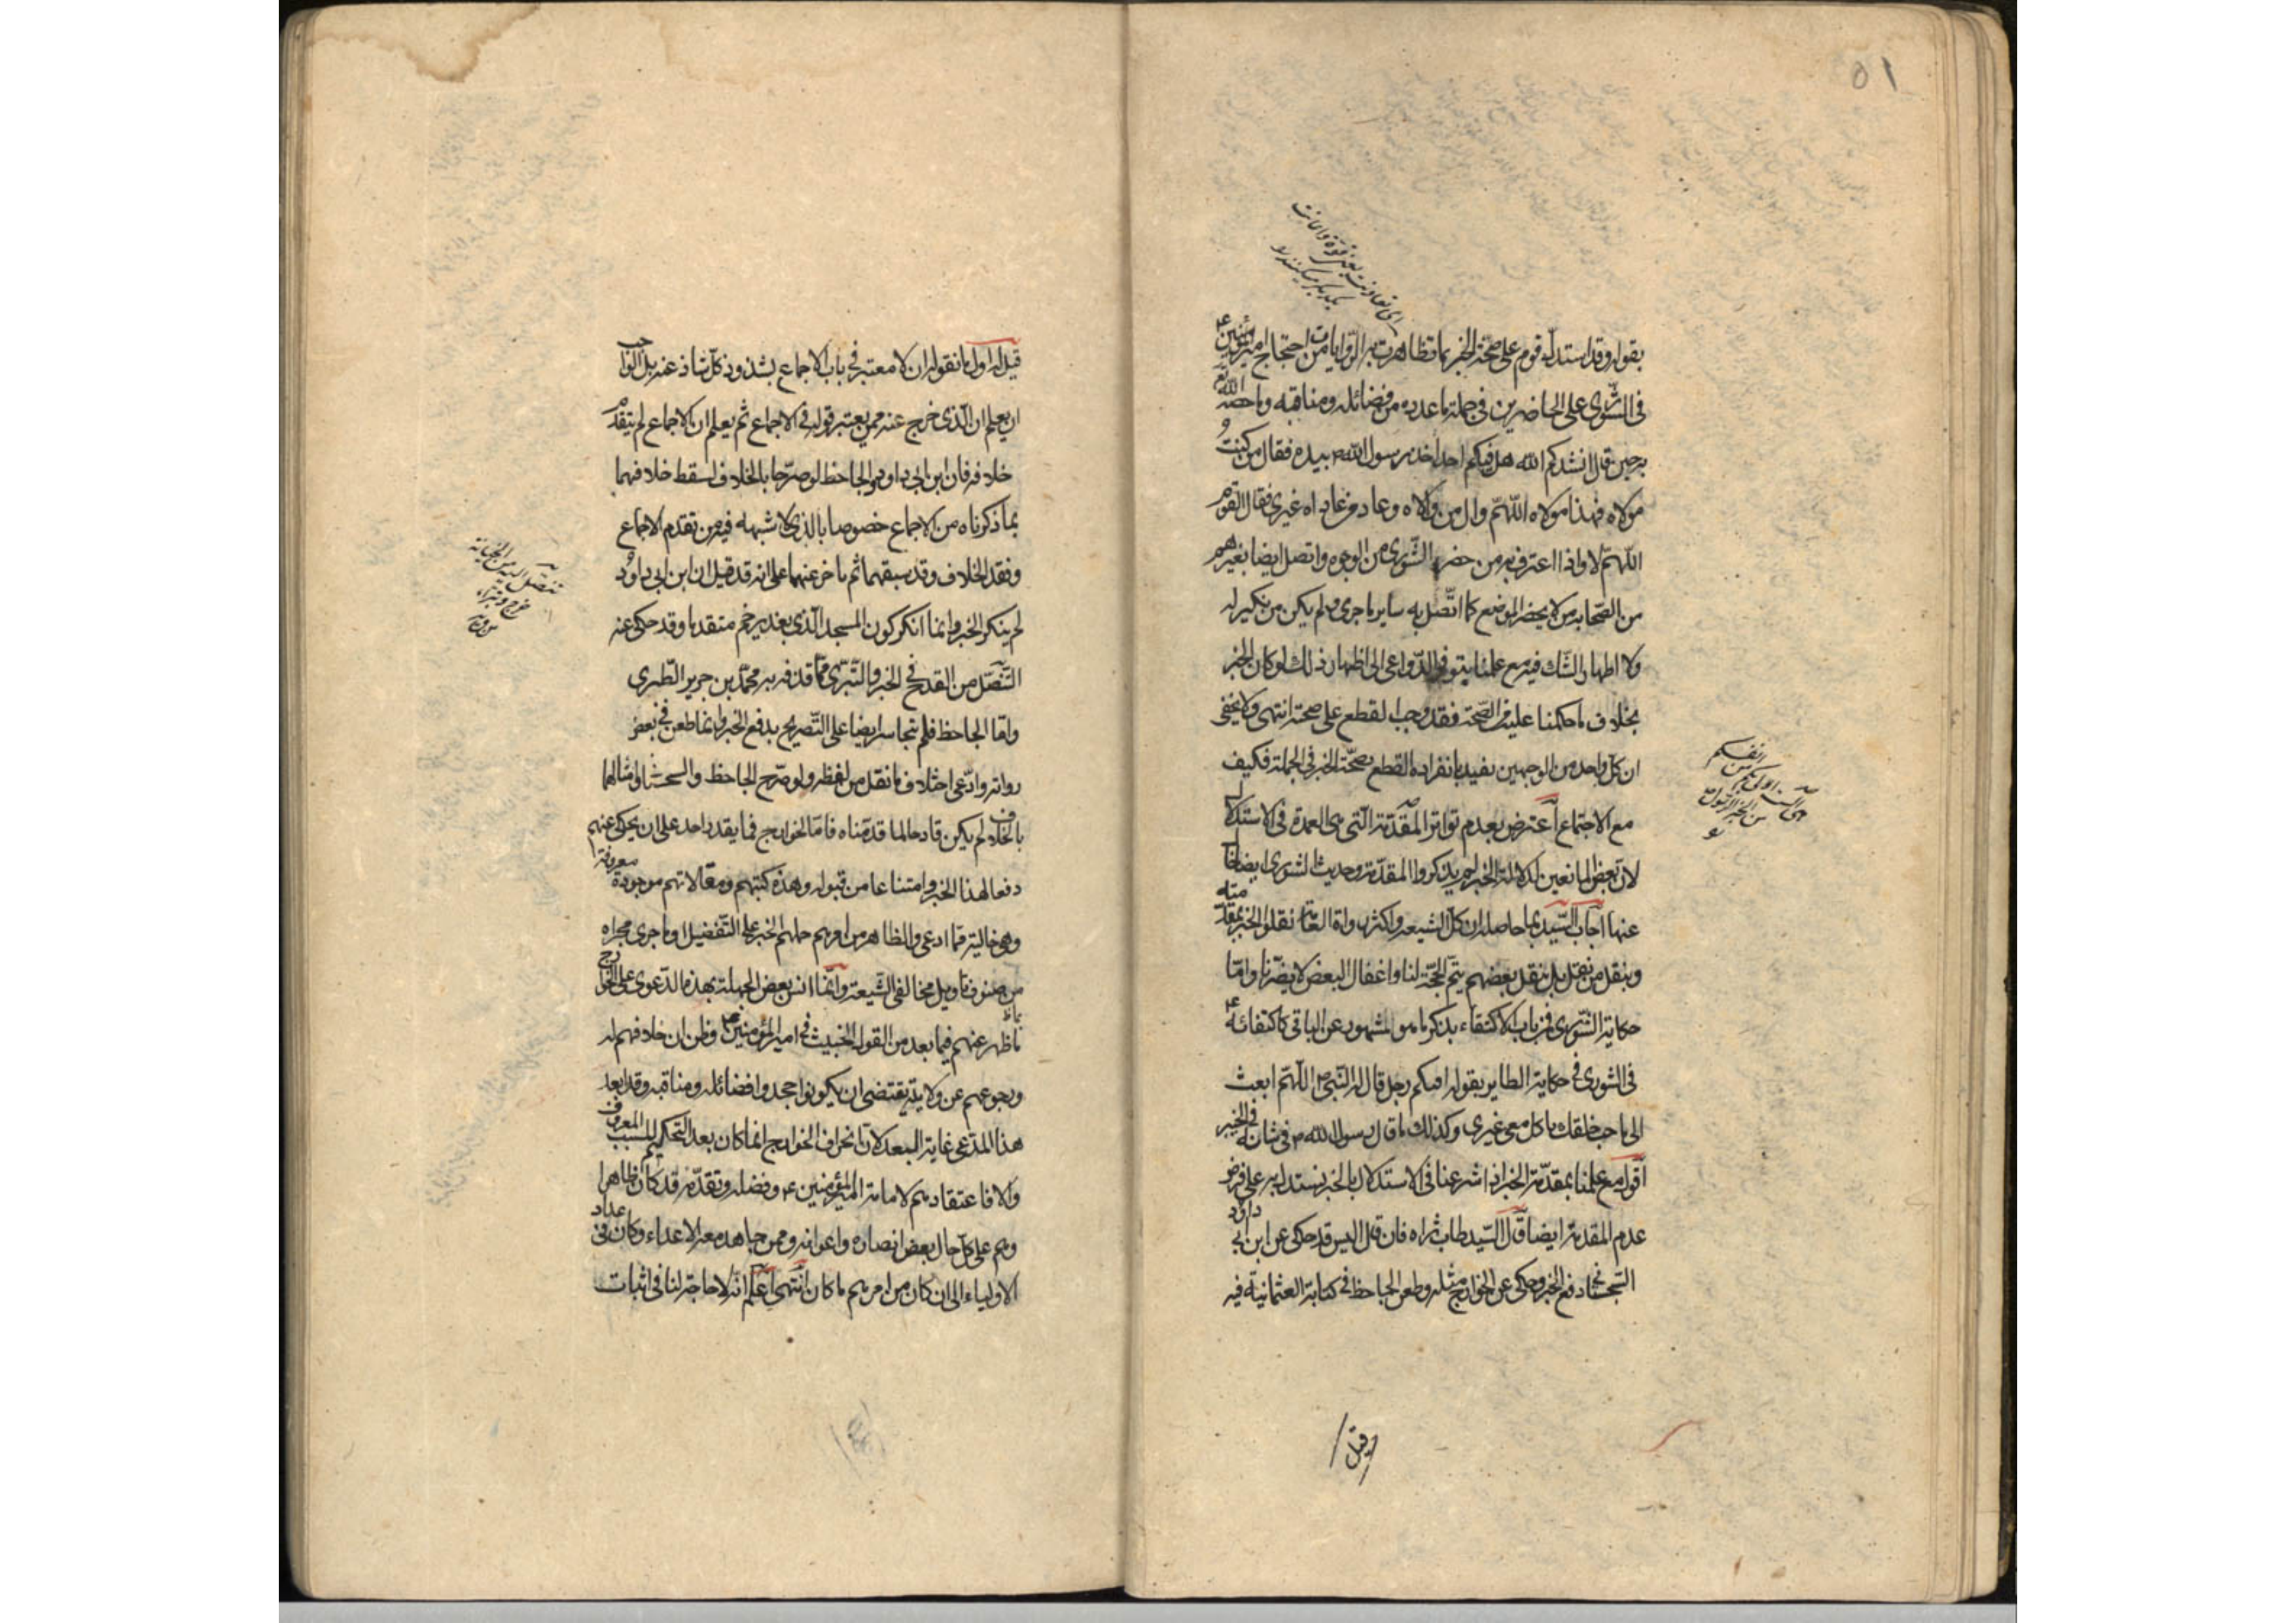 ٥١
بقوله وقد استدل قوم على صحة الخبر بما تظاهرت به الروايات من احتجاج امير المؤمنين ع
فى الشورى على الحاضرين فى جملة ما عدده من فضائله ومناقبه وما خصه الله تع
به حين قال انشدكم الله هل فيكم احد اخذ رسول الله ص بيده فقال من كنتُ
مولاه فهذا مولاه اللهمّ وال من والاه وعاد من عاداه غيرى فقال القوم
اللهمّ لا واذا اعترف به من حضر الشّورى من الوجوه واتصل ايضا بغيرهم
من الصّحابه من لا يحضر الموضع كما اتّصل به ساير ما جرى ولم يكن من نكير له
ولا اظهار الشّك فيه مع علمنا بتوفر الدّواعى الى اظهار ذلك لو كان الخبر
بخلاف ما حكمنا عليه من الصّحة فقد وجب القطع على صحته انتهى ولا يخفى
ان كل واحد من الوجهين يفيد بانفراده القطع بصحّة الخبر فى الجملة فكيف
مع الاجتماع اعترض بعدم تواتر المقدّمة الّتى هى العمدة فى الاستدلال
لان بعض المانعين لدلالة الخبر لم يذكروا المقدّمة وحديث الشورى ايضا خال
عنها اجاب السّيد بما حاصله ان كل الشيعه واكثر رواة العامّة نقلوا الخبر بمقدّمته
وبنقل من نقل بل بنقل بعضهم يتم الحجّة لنا واغفال البعض لا يضرّنا وامّا
حكاية الشّورى فمن باب الاكتفاء بذكر ما هو المشهور عن الباقى كاكتفائه ع
فى الشورى فى حكاية الطاير بقوله افيكم رجل قال له النّبى ص اللهمّ ابعث
الى باحب خلقك ياكل معى غيرى وكذلك ما قال رسول الله ص فى شانه فى الخيبر
اقول مع علمنا بمقدّمة الخبر اذا شرعنا فى الاستدلال بالخبر نستدل به على فرض
عدم المقدمة ايضا قال السّيد طاب ثراه فان قيل اليس قد حكى عن ابن ابى داود
السّجستانى دفع الخبر وحكى عن الخوارج مثله وطعن الجاحظ فى كتابه العثمانية فيه
قيل
قيل له اول ما نقوله ان لا معتبر فى باب الاجماع بشذوذ كل شاذ عنه بل الواجب
ان يعلم ان الّذى خرج عنه ممن يعتبر قوله فى الاجماع ثم يعلم ان الاجماع لم يتقدّم
خلافه فان ابن ابى داود والجاحظ لو صرّحا بالخلاف لسقط خلافهما
بما ذكرناه من الاجماع خصوصا بالذى لا شبهه فيه من تقدم الاجماع
وفقد الخلاف وقد سبقهما ثم تاخر عنهما على انه قد قيل ان ابن ابى داود
لم ينكر الخبر وانما انكر كون المسجد الّذى بغدير خم متقدما وقد حكى عنه
التّنصّل من القدح فى الخبر والتّبرّى ممّا قذفه به محمّد بن جرير الطّبرى
وامّا الجاحظ فلم يتجاسر ايضا على التّصريح بدفع الخبر وانما طعن فى بعض
رواته وادّعى اختلاف ما نقل من لفظه ولو صرّح الجاحظ والسجستانى وامثالهما
بالخلاف لم يكن قادحا لما قدّمناه فامّا الخوارج فما يقدر احد على ان يحكى عنهم
دفعا لهذا الخبر وامتناعا من قبوله وهذه كتبهم ومقالاتهم موجودة معروفة
وهى خالية ممّا ادعى والظاهر من امرهم حملهم الخبر على التّفضيل وما جرى مجراه
من صنوف تاويل مخالفى الشّيعة وانّما انس بعض الجهلة بهذه الدّعوى على الخوارج
ما ظهر عنهم فيما بعد من القول الخبيث فى امير المؤمنين ع وظن ان خلافهم له
ورجوعهم عن ولايته يقتضى ان يكونوا جحدوا فضائله ومناقبه وقد ابعد
هذا المدّعى غاية البعد لان انحراف الخوارج انما كان بعد التحكيم للسبب المعروف
والا فاعتقادهم لامامة امير المؤمنين ع وفضله وتقدّمه قد كان ظاهرا
وهم على كل حال بعض انصاره واعوانه وممن جاهد معه الاعداء وكان فى عداد
الاولياء الى ان كان من امرهم ما كان انتهى اعلم انّه لا حاجة لنا فى اثبات
تنصّل اليه من الجناية
خرج وتبرّاء